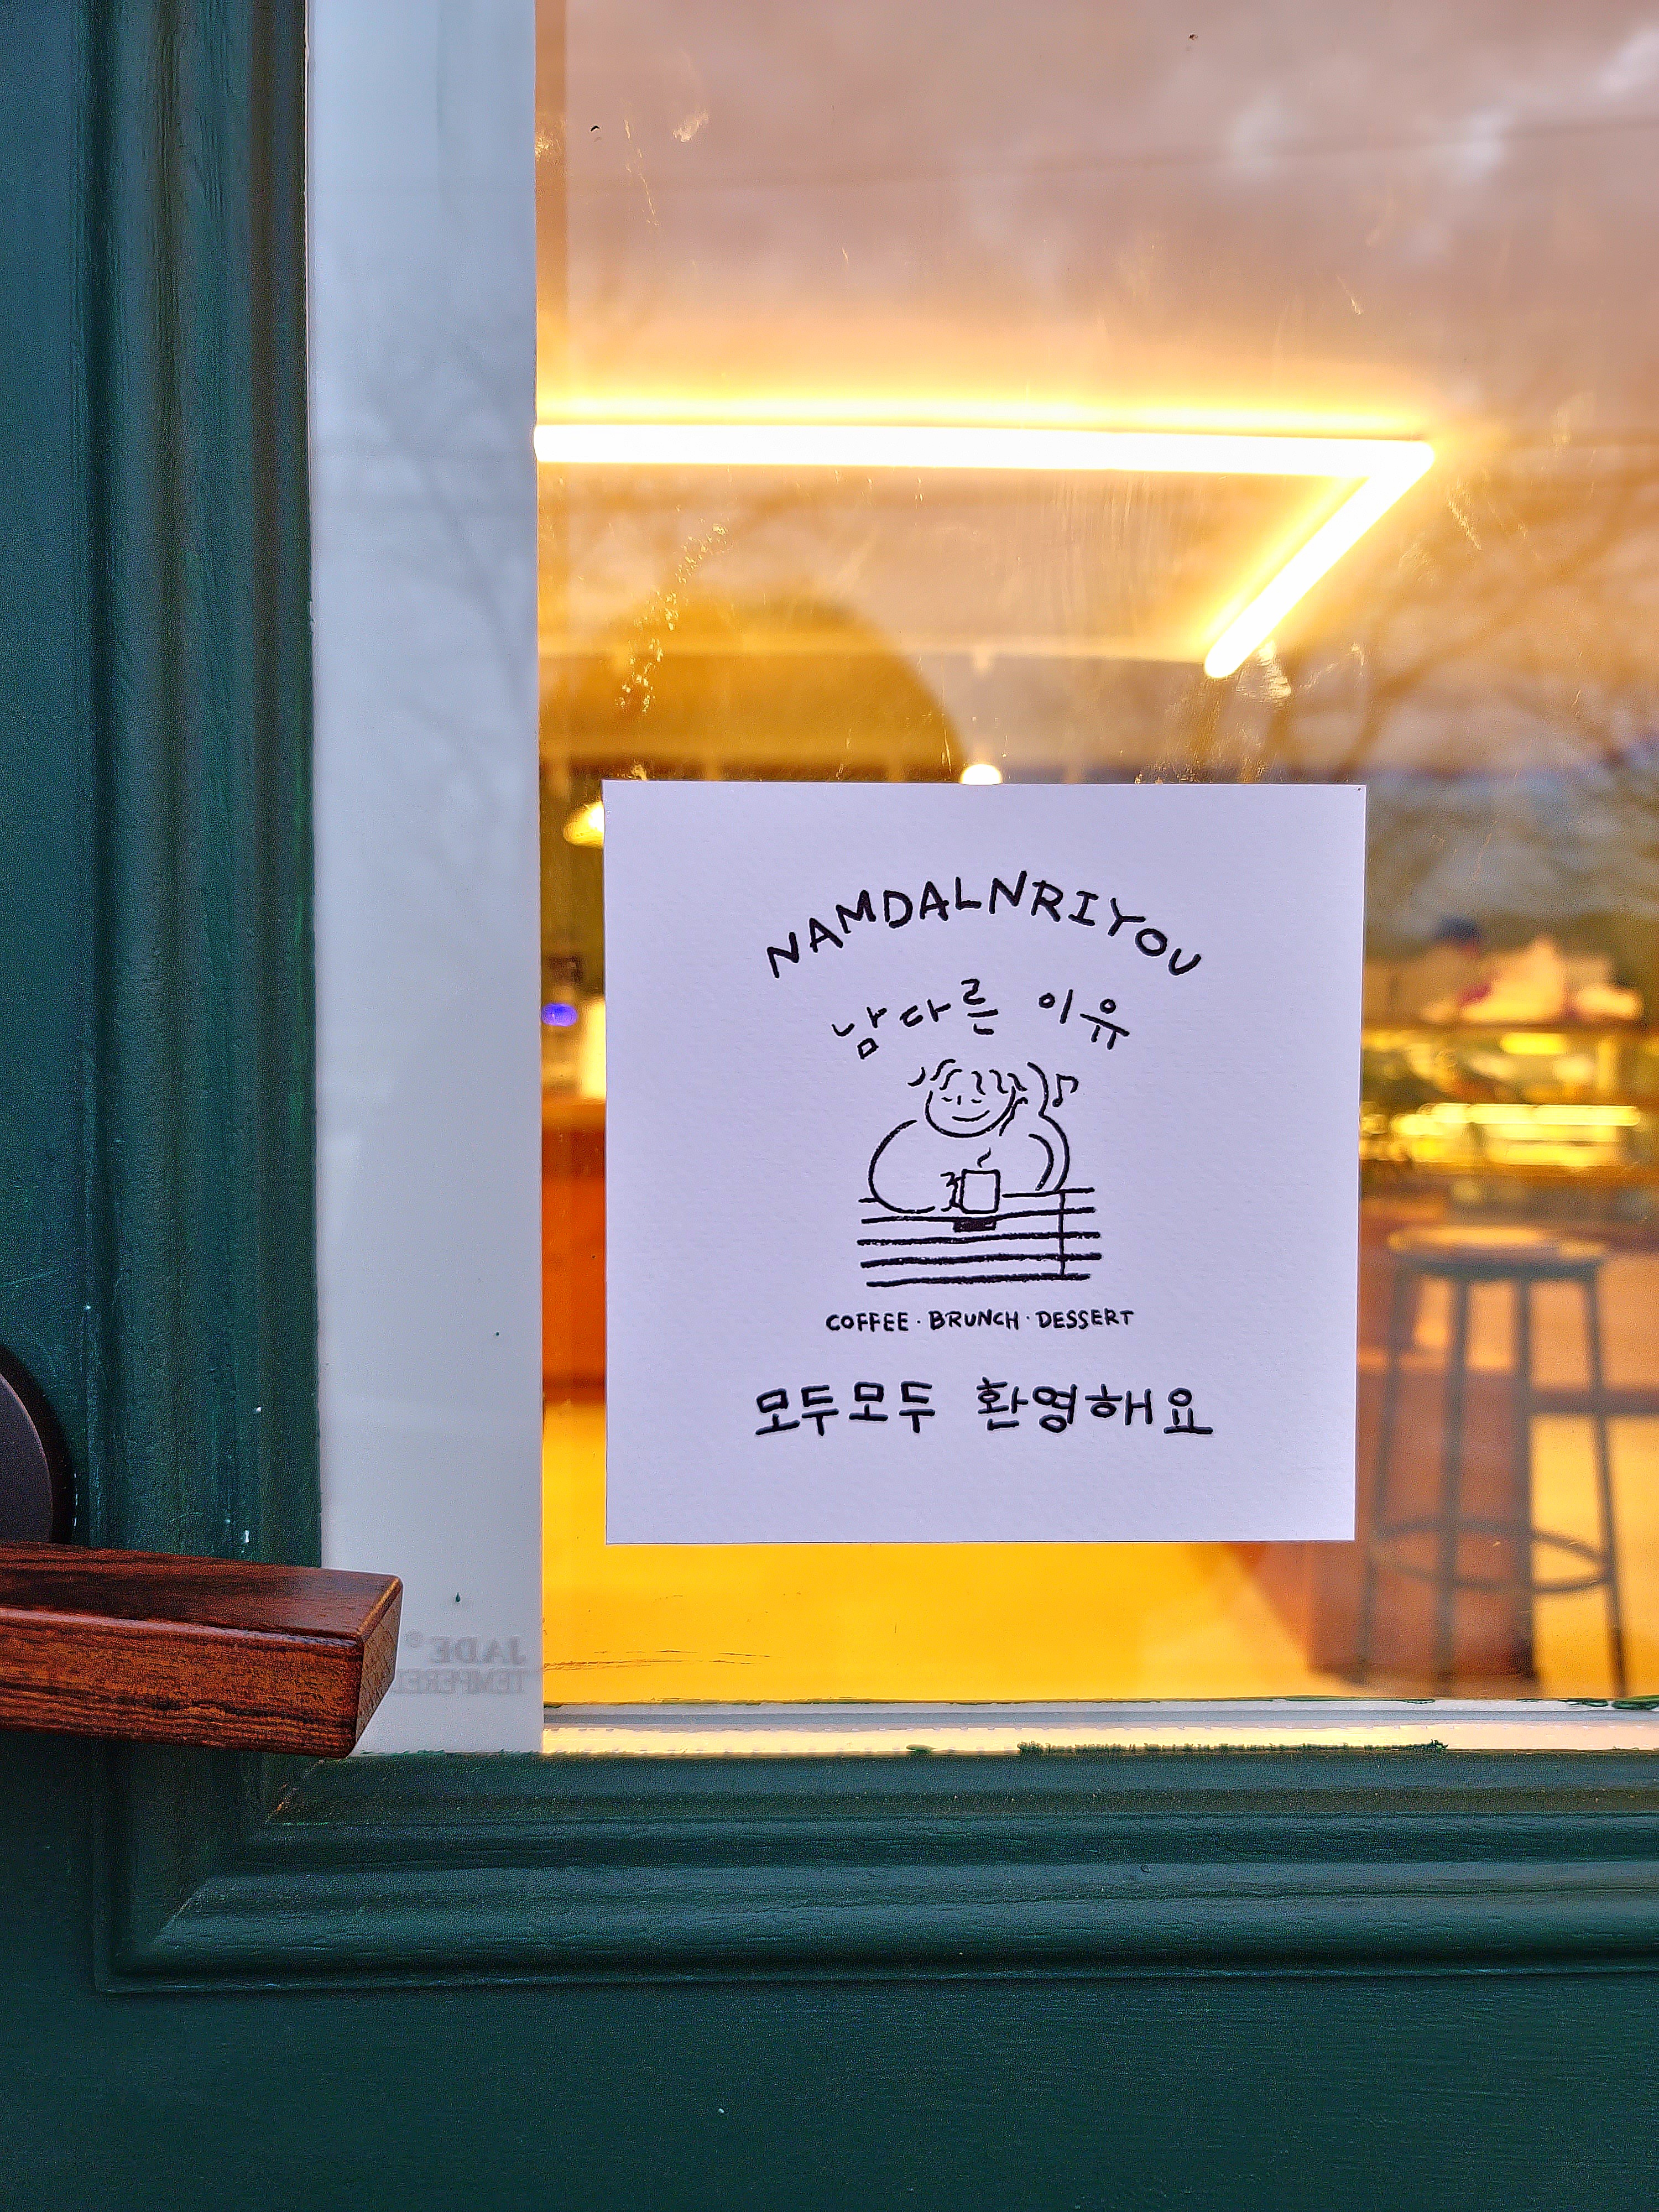 NAMDALNRIYOU
남다른 이유
COFFEE · BRUNCH · DESSERT
모두모두 환영해요
JADE®
TEMPERED